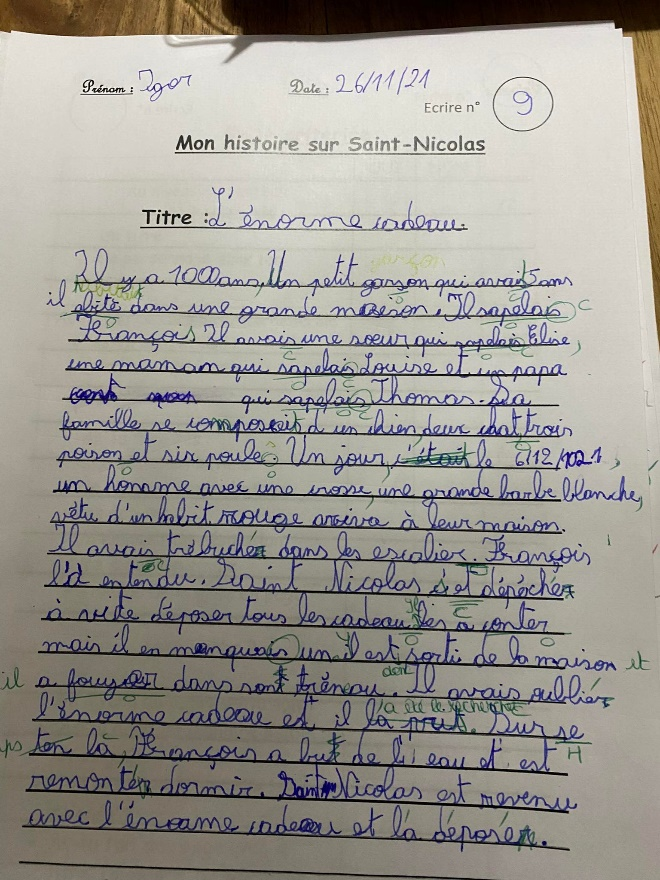 Prénom : Igor Date : 26/11/21
Ecrire n° 9
Mon histoire sur Saint-Nicolas
Titre : L'énorme cadeau.
garçon
Il y a 1000 ans, Un petit garson qui avait 5 ans
habitait
il abite dans une grande maison. Il sapelais
François Il avais une sœur qui sapelais Élise,
une maman qui sapelais Louise et un papa
qui sapelais Thomas. Sa
famille se composeit d'un chien deux chat trois
poison et six poule. Un jour, c'était le 6/12/1021,
un homme avec une crosse, une grande barbe blanche,
vêtu d'un habit rouge arriva à leur maison.
Il avais trébuché dans les escalier. François
l'a entendu. Saint Nicolas s'et dépéché
à vite déposer tous les cadeau. Il les a conter
mais il en manquais un. Il est sorti de la maison et
il a fouyer dans son trêneau. Il avais oublié
dont
l'énorme cadeau et il l'a prit. Dur se
a été le rechercher
ten là, François a but de l'eau et est
remonté dormir. Saint Nicolas est revenu
avec l'énorme cadeau et l'a déposé.